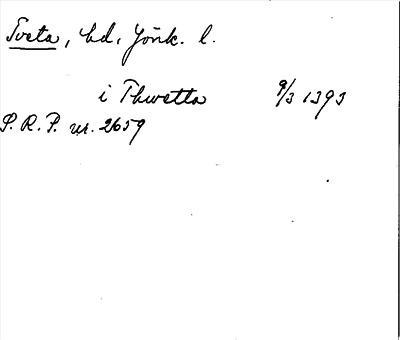 Tveta, hd, Jönk. l.
i Thwetta 9/3 1393
S. R. P. nr. 2659